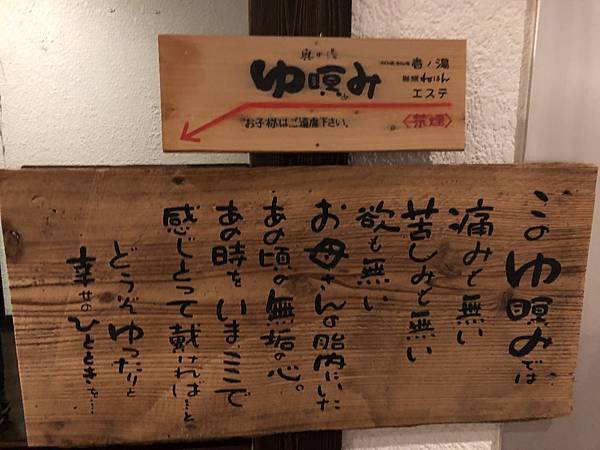 麻の湯
ゆ瞑み
壱ノ湯
エステ
お子様はご遠慮下さい。
〈禁煙〉
このゆ瞑みでは
痛みも無い
苦しみも無い
欲も無い
お母さんの胎内にいた
あの頃の無垢の心。
あの時をいまここで
感じとって戴ければ…と
どうぞゆったりと
幸せのひとときを…